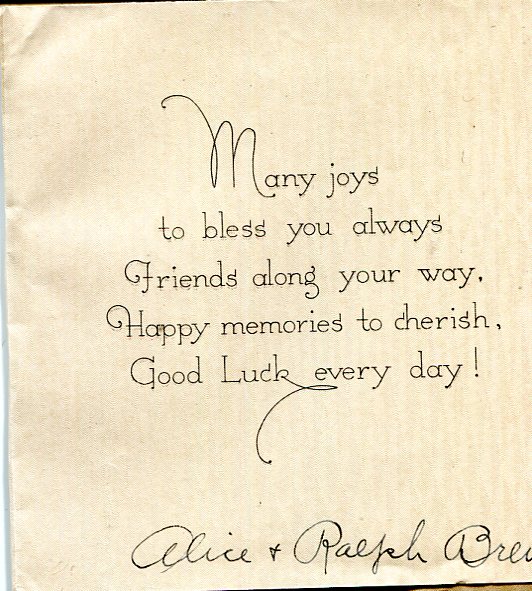 Many joys
to bless you always
Friends along your way,
Happy memories to cherish,
Good Luck every day!
Alice + Ralph